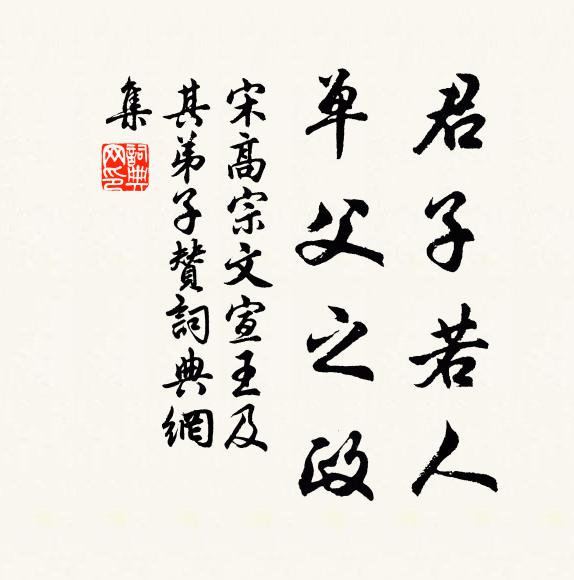 君子若人
单父之政
宋高宗文宣王及
其弟子贊詞典網
集
詞典网印